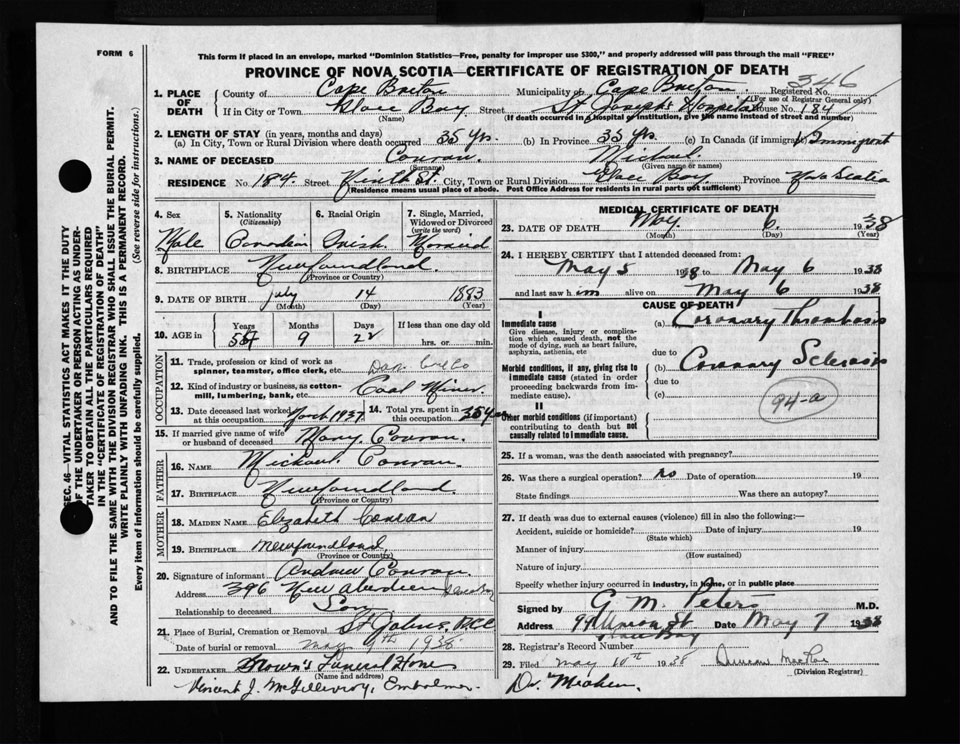 FORM 6
This form if placed in an envelope, marked "Dominion Statistics—Free, penalty for improper use $300," and properly addressed will pass through the mail "FREE"
PROVINCE OF NOVA SCOTIA—CERTIFICATE OF REGISTRATION OF DEATH
346
1. PLACE OF DEATH
County of Cape Breton Municipality of Cape Breton Registered No.
(For use of Registrar General only)
If in City or Town Glace Bay Street St Joseph's Hospital House No. 184
(Name) (If death occurred in a hospital or institution, give the name instead of street and number)
2. LENGTH OF STAY (in years, months and days)
(a) In City, Town or Rural Division where death occurred 35 yrs. (b) In Province 35 yrs. (c) In Canada (if immigrant) Immigrant
3. NAME OF DECEASED Conran. Michael
(Surname) (Given name or names)
RESIDENCE No. 184 Street Ninth St. City, Town or Rural Division Glace Bay Province Nova Scotia
(Residence means usual place of abode. Post Office Address for residents in rural parts not sufficient)
4. Sex Male
5. Nationality (Citizenship) Canadian
6. Racial Origin Irish.
7. Single, Married, Widowed or Divorced (write the word) Married
8. BIRTHPLACE Newfoundland.
(Province or Country)
9. DATE OF BIRTH July 14 1883
(Month) (Day) (Year)
10. AGE in Years Months 9 Days 22 If less than one day old hrs. or min.
OCCUPATION
11. Trade, profession or kind of work as spinner, teamster, office clerk, etc.
12. Kind of industry or business, as cotton-mill, lumbering, bank, etc. Coal Miner
13. Date deceased last worked at this occupation March 1937 14. Total yrs. spent in this occupation
15. If married give name of wife or husband of deceased Mary Conran.
FATHER
16. NAME Michael Conran.
17. BIRTHPLACE Newfoundland.
(Province or Country)
MOTHER
18. MAIDEN NAME Elizabeth Conran
19. BIRTHPLACE Newfoundland.
(Province or Country)
20. Signature of informant Andrew Conran.
Address 396 New Aberdeen Glace Bay
Relationship to deceased Son
21. Place of Burial, Cremation or Removal St Johns,
Date of burial or removal May 9th 1938
22. UNDERTAKER Brown's Funeral Home
(Name and address)
Vincent J. McGillivray, Embalmer.
MEDICAL CERTIFICATE OF DEATH
23. DATE OF DEATH May. 6. 1938
(Month) (Day) (Year)
24. I HEREBY CERTIFY that I attended deceased from:
May 5 1938 to May 6 1938
and last saw him alive on May 6 1938
CAUSE OF DEATH
I
Immediate cause
Give disease, injury or complication which caused death, not the mode of dying, such as heart failure, asphyxia, asthenia, etc
(a) Coronary Thrombosis
due to
Morbid conditions, if any, giving rise to immediate cause (stated in order proceeding backwards from immediate cause).
(b) Coronary Sclerosis
due to
(c)
94-a
II
Other morbid conditions (if important) contributing to death but not causally related to immediate cause.
25. If a woman, was the death associated with pregnancy?
26. Was there a surgical operation? no Date of operation 19
State findings Was there an autopsy?
27. If death was due to external causes (violence) fill in also the following:—
Accident, suicide or homicide? Date of injury 19
(State which)
Manner of injury
(How sustained)
Nature of injury
Specify whether injury occurred in industry, in home, or in public place
Signed by G. M. Peters M.D.
Address Union St Date May 7 1938
Glace Bay
28. Registrar's Record Number
29. Filed May 10th 1938
(Division Registrar)
SEC. 46—VITAL STATISTICS ACT MAKES IT THE DUTY
OF THE UNDERTAKER OR PERSON ACTING AS UNDER-
TAKER TO OBTAIN ALL THE PARTICULARS REQUIRED
IN THE "CERTIFICATE OF REGISTRATION OF DEATH"
AND TO FILE THE SAME WITH THE DIVISION REGISTRAR WHO SHALL ISSUE THE BURIAL PERMIT.
WRITE PLAINLY WITH UNFADING INK. THIS IS A PERMANENT RECORD.
Every item of information should be carefully supplied. (See reverse side for instructions.)